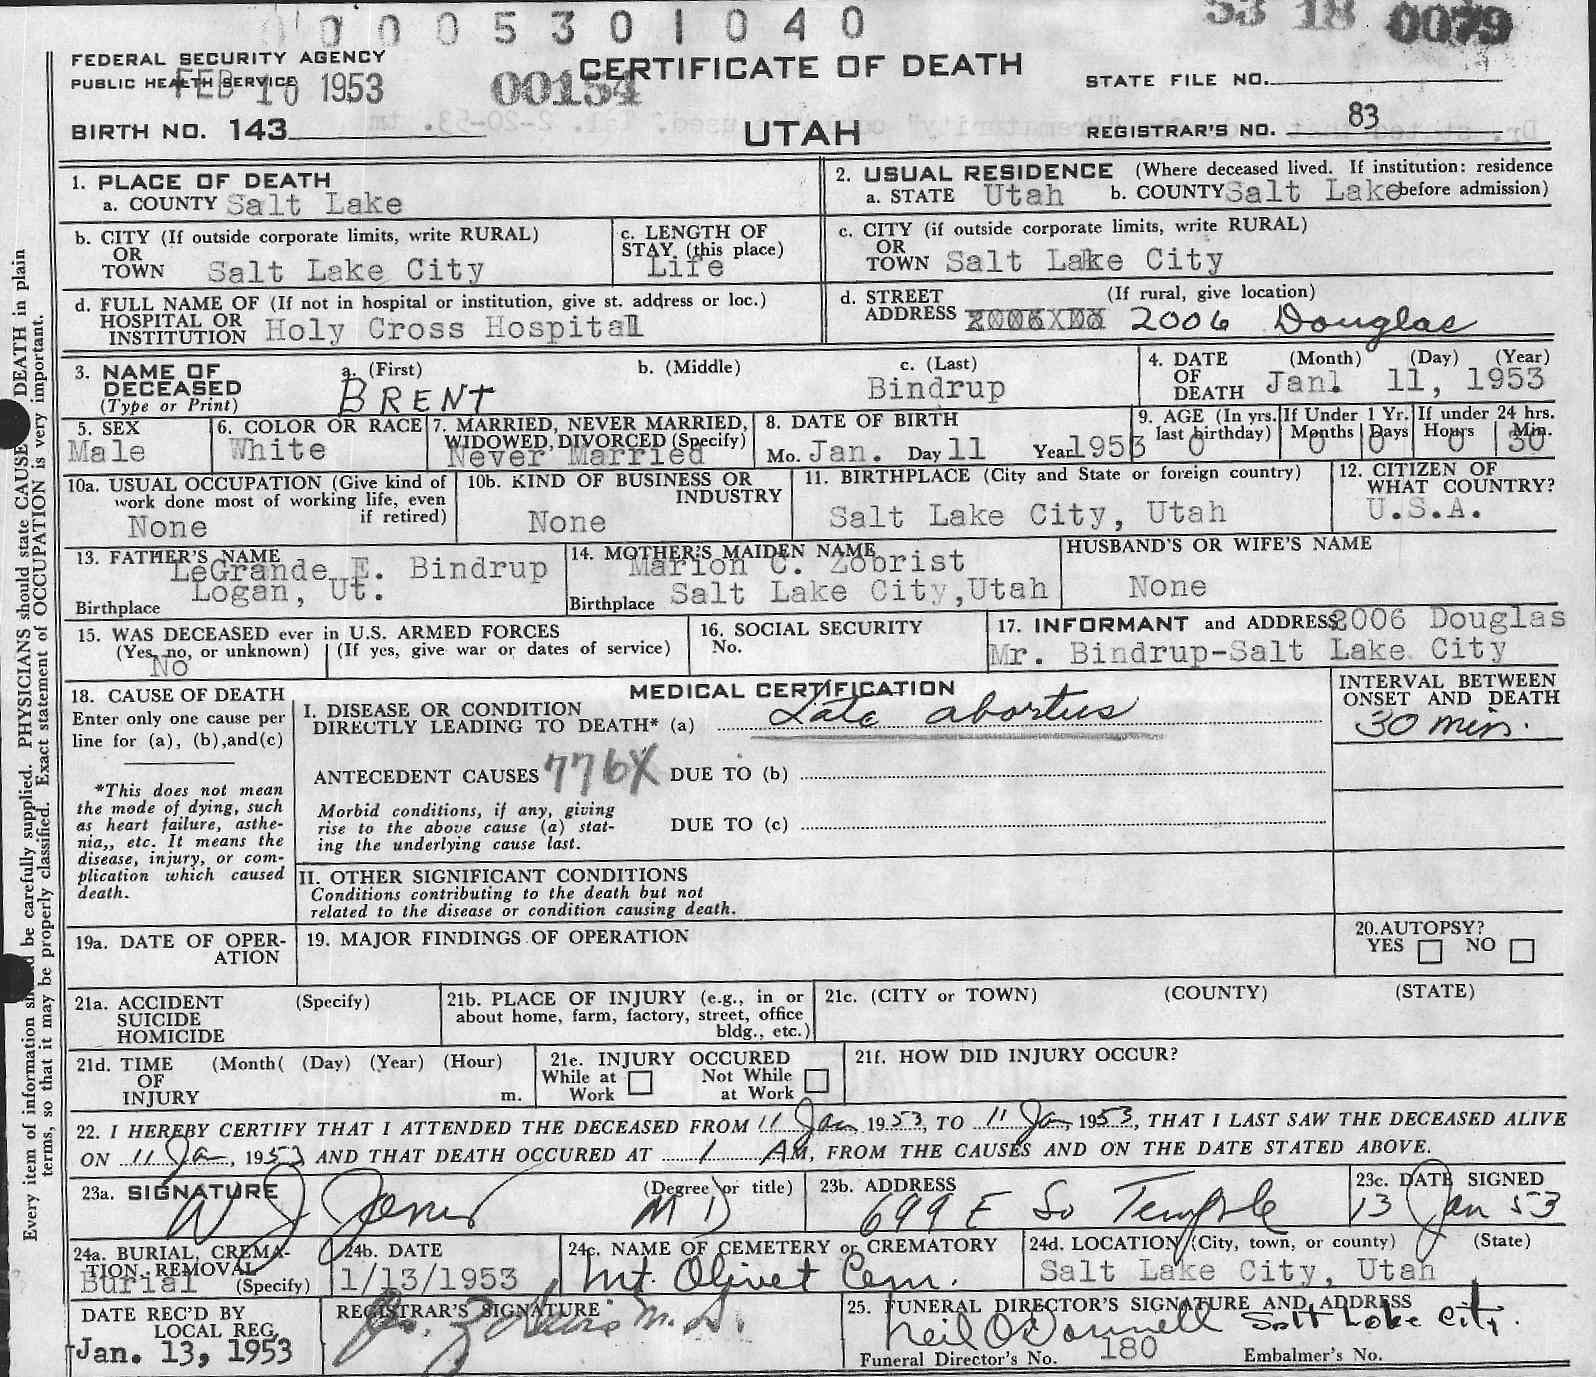 0005301040
53 18 0079
FEDERAL SECURITY AGENCY
PUBLIC HEALTH SERVICE
FEB 10 1953
00154
CERTIFICATE OF DEATH
STATE FILE NO.
BIRTH NO. 143
UTAH
REGISTRAR'S NO. 83
1. PLACE OF DEATH
a. COUNTY Salt Lake
2. USUAL RESIDENCE (Where deceased lived. If institution: residence
a. STATE Utah b. COUNTY Salt Lake before admission)
b. CITY (If outside corporate limits, write RURAL)
OR
TOWN Salt Lake City
c. LENGTH OF
STAY (this place)
Life
c. CITY (if outside corporate limits, write RURAL)
OR
TOWN Salt Lake City
d. FULL NAME OF (If not in hospital or institution, give st. address or loc.)
HOSPITAL OR
INSTITUTION Holy Cross Hospital
d. STREET (If rural, give location)
ADDRESS 2006 Douglas
3. NAME OF
DECEASED
(Type or Print)
a. (First)
BRENT
b. (Middle)
c. (Last)
Bindrup
4. DATE (Month) (Day) (Year)
OF
DEATH Jan. 11, 1953
5. SEX
Male
6. COLOR OR RACE
White
7. MARRIED, NEVER MARRIED,
WIDOWED, DIVORCED (Specify)
Never Married
8. DATE OF BIRTH
Mo. Jan. Day 11 Year 1953
9. AGE (In yrs.
last birthday)
0
If Under 1 Yr.
Months Days
0 0
If under 24 hrs.
Hours Min.
0 30
10a. USUAL OCCUPATION (Give kind of
work done most of working life, even
if retired)
None
10b. KIND OF BUSINESS OR
INDUSTRY
None
11. BIRTHPLACE (City and State or foreign country)
Salt Lake City, Utah
12. CITIZEN OF
WHAT COUNTRY?
U.S.A.
13. FATHER'S NAME
LeGrande E. Bindrup
Logan, Ut.
Birthplace
14. MOTHER'S MAIDEN NAME
Marion C. Zobrist
Birthplace Salt Lake City, Utah
HUSBAND'S OR WIFE'S NAME
None
15. WAS DECEASED ever in U.S. ARMED FORCES
(Yes, no, or unknown) (If yes, give war or dates of service)
No
16. SOCIAL SECURITY
No.
17. INFORMANT and ADDRESS 2006 Douglas
Mr. Bindrup-Salt Lake City
18. CAUSE OF DEATH
Enter only one cause per
line for (a), (b),and(c)
*This does not mean
the mode of dying, such
as heart failure, asthe-
nia,, etc. It means the
disease, injury, or com-
plication which caused
death.
MEDICAL CERTIFICATION
I. DISEASE OR CONDITION
DIRECTLY LEADING TO DEATH* (a) Late abortus
ANTECEDENT CAUSES 776X DUE TO (b)
Morbid conditions, if any, giving
rise to the above cause (a) stat-
ing the underlying cause last.
DUE TO (c)
II. OTHER SIGNIFICANT CONDITIONS
Conditions contributing to the death but not
related to the disease or condition causing death.
INTERVAL BETWEEN
ONSET AND DEATH
30 min.
19a. DATE OF OPER-
ATION
19. MAJOR FINDINGS OF OPERATION
20. AUTOPSY?
YES NO
21a. ACCIDENT (Specify)
SUICIDE
HOMICIDE
21b. PLACE OF INJURY (e.g., in or
about home, farm, factory, street, office
bldg., etc.)
21c. (CITY or TOWN) (COUNTY) (STATE)
21d. TIME (Month( (Day) (Year) (Hour)
OF
INJURY m.
21e. INJURY OCCURED
While at Not While
Work at Work
21f. HOW DID INJURY OCCUR?
22. I HEREBY CERTIFY THAT I ATTENDED THE DECEASED FROM 11 Jan 1953, TO 11 Jan, 1953, THAT I LAST SAW THE DECEASED ALIVE
ON 11 Ja, 1953 AND THAT DEATH OCCURED AT 1 AM, FROM THE CAUSES AND ON THE DATE STATED ABOVE.
23a. SIGNATURE (Degree or title)
W J Jones MD
23b. ADDRESS
699 E So Temple
23c. DATE SIGNED
13 Jan 53
24a. BURIAL, CREMA-
TION, REMOVAL
Burial (Specify)
24b. DATE
1/13/1953
24c. NAME OF CEMETERY or CREMATORY
Mt. Olivet Cem.
24d. LOCATION (City, town, or county) (State)
Salt Lake City, Utah
DATE REC'D BY
LOCAL REG.
Jan. 13, 1953
REGISTRAR'S SIGNATURE
M.D.
25. FUNERAL DIRECTOR'S SIGNATURE AND ADDRESS
Neil O'Donnell Salt Lake City.
180
Funeral Director's No. Embalmer's No.
Every item of information should be carefully supplied. PHYSICIANS should state CAUSE OF DEATH in plain
terms, so that it may be properly classified. Exact statement of OCCUPATION is very important.